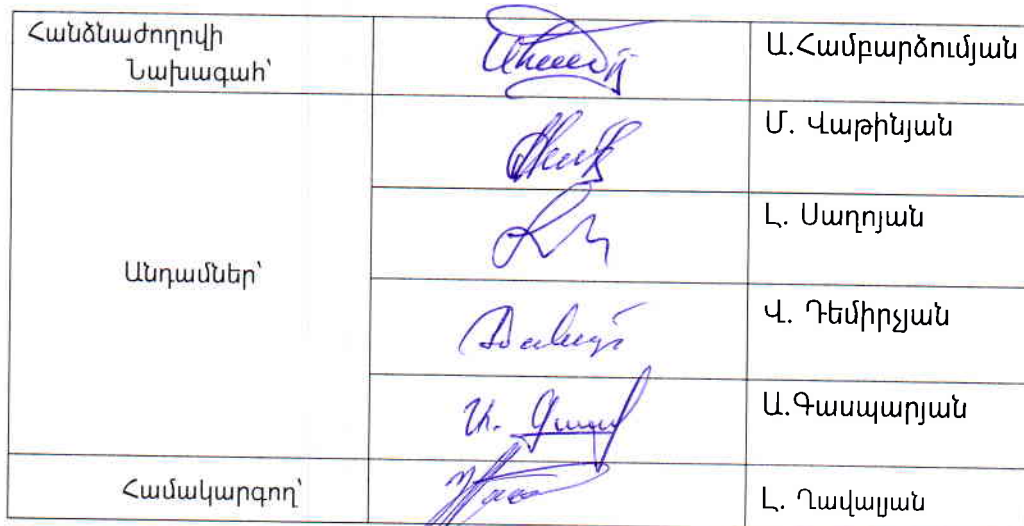 Հանձնաժողովի
Նախագահ՝
Ա.Համբարձումյան
Մ. Վաթինյան
Լ. Սաղոյան
Անդամներ՝
Վ. Դեմիրչյան
Ա.Գասպարյան
Համակարգող՝
Լ. Ղավալյան